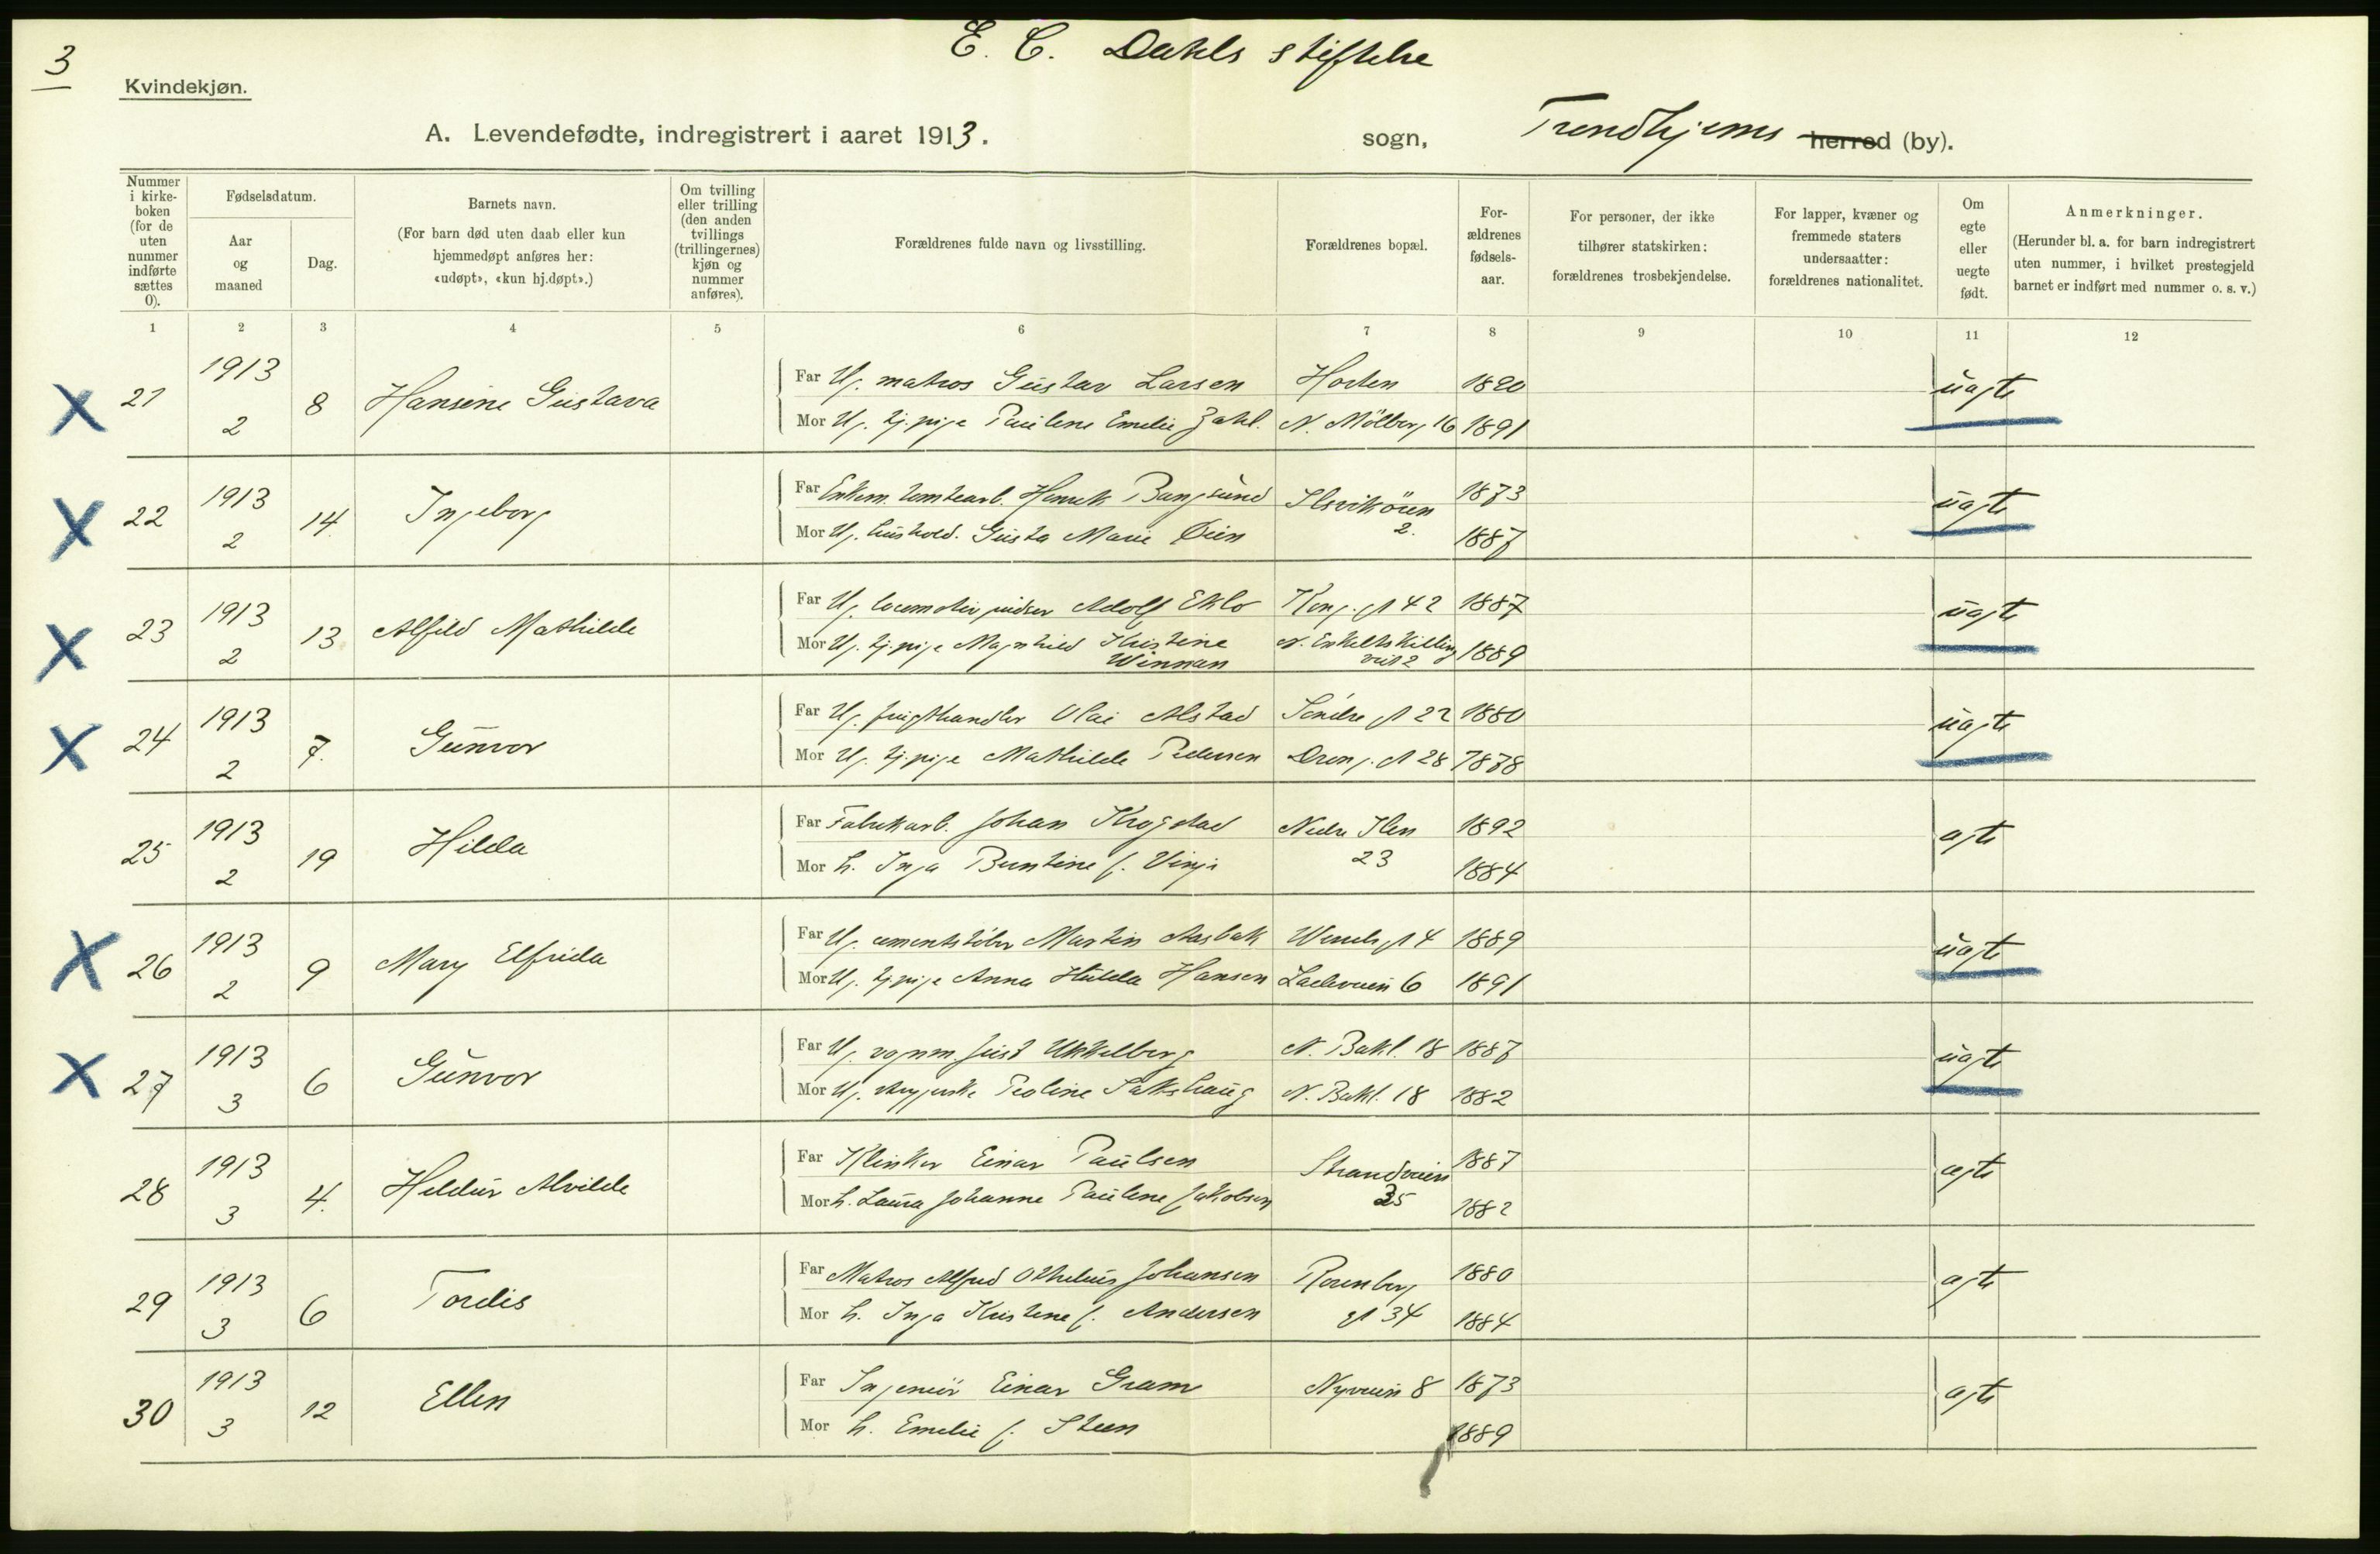 3
E. C. Dahls stiftelse
Kvindekjøn.
A. Levendefødte, indregistrert i aaret 1913.
sogn, Trondhjems herred (by).
Nummer i kirkeboken (for de uten nummer indførte sættes 0).
Fødselsdatum.
Aar og maaned
Dag.
Barnets navn.
(For barn død uten daab eller kun hjemmedøpt anføres her: «udøpt», «kun hj.døpt».)
Om tvilling eller trilling (den anden tvillings (trillingernes) kjøn og nummer anføres).
Forældrenes fulde navn og livsstilling.
Forældrenes bopæl.
Forældrenes fødselsaar.
For personer, der ikke tilhører statskirken: forældrenes trosbekjendelse.
For lapper, kvæner og fremmede staters undersaatter: forældrenes nationalitet.
Om egte eller uegte født.
Anmerkninger.
(Herunder bl. a. for barn indregistrert uten nummer, i hvilket prestegjeld barnet er indført med nummer o. s. v.)
1 2 3 4 5 6 7 8 9 10 11 12
X 21 1913 2 8 Hansine Gustava
Far Ug. matros Gustav Larsen Horten 1890 uægte
Mor Ug. tj.pige Pauline Emilie Zahl. N. Möllebg 16 1891
X 22 1913 2 14 Ingeborg
Far Enkem. tomtearb. Henrik Bangsund Ilsvikören 2. 1873 uægte
Mor Ug. hushold. Gusta Marie Öien 1887
X 23 1913 2 13 Alfild Mathilde
Far Ug. locomotivpudser Adolf Eklo Kong. gt 42 1887 uægte
Mor Ug. tj.pige Magnhild Kristine Winnan N. Enkeltskilling veit 2 1889
X 24 1913 2 7. Gunvor
Far Ug. frugthandler Olai Alstad Söndre gt 22 1880 uægte
Mor Ug. tj.pige Mathilde Pedersen Dron. gt 28 1878
25 1913 2 19 Hilda
Far Fabrikarb. Johan Krogstad Nedre Ilen 23 1892 ægte
Mor h. Inga Buntine f. Vinje 1884
X 26 1913 2 9 Mary Elfrida
Far Ug. cementstöber Martin Aasbak Wessels gt 4 1889 uægte
Mor Ug. tj.pige Anna Hulda Hansen Ladeveien 6 1891
X 27 1913 3 6 Gunvor
Far Ug. vognm. Just Ukkelberg N. Bakl. 18 1887 uægte
Mor Ug. Peoline Sakshaug N. Bakl. 18 1882
28 1913 3 4. Hildur Alvilde
Far Klinker Einar Paulsen Strandveien 35 1887 ægte
Mor h. Laura Johanne Pauline Jakobsen 1882
29 1913 3 6 Tordis
Far Matros Alfred Othelius Johansen Rosenborg gt 34 1880 ægte
Mor h. Inga Kristine f. Andersen 1884
30 1913 3 12 Ellen
Far Ingeniör Einar Gram Nyveien 8 1873 ægte
Mor h. Emilie f. Steen 1889